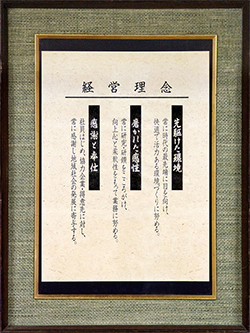 経営理念
先駆けた環境
常に時代の最先端に目を向け、
快適で活力ある環境づくりに努める。
磨かれた感性
常に研究・研鑽をこころがけ、
向上心と柔軟性をもって業務に努める。
感謝と奉仕
社員はじめ、協力企業・得意先に対し、
常に感謝し地域社会の発展に寄与する。